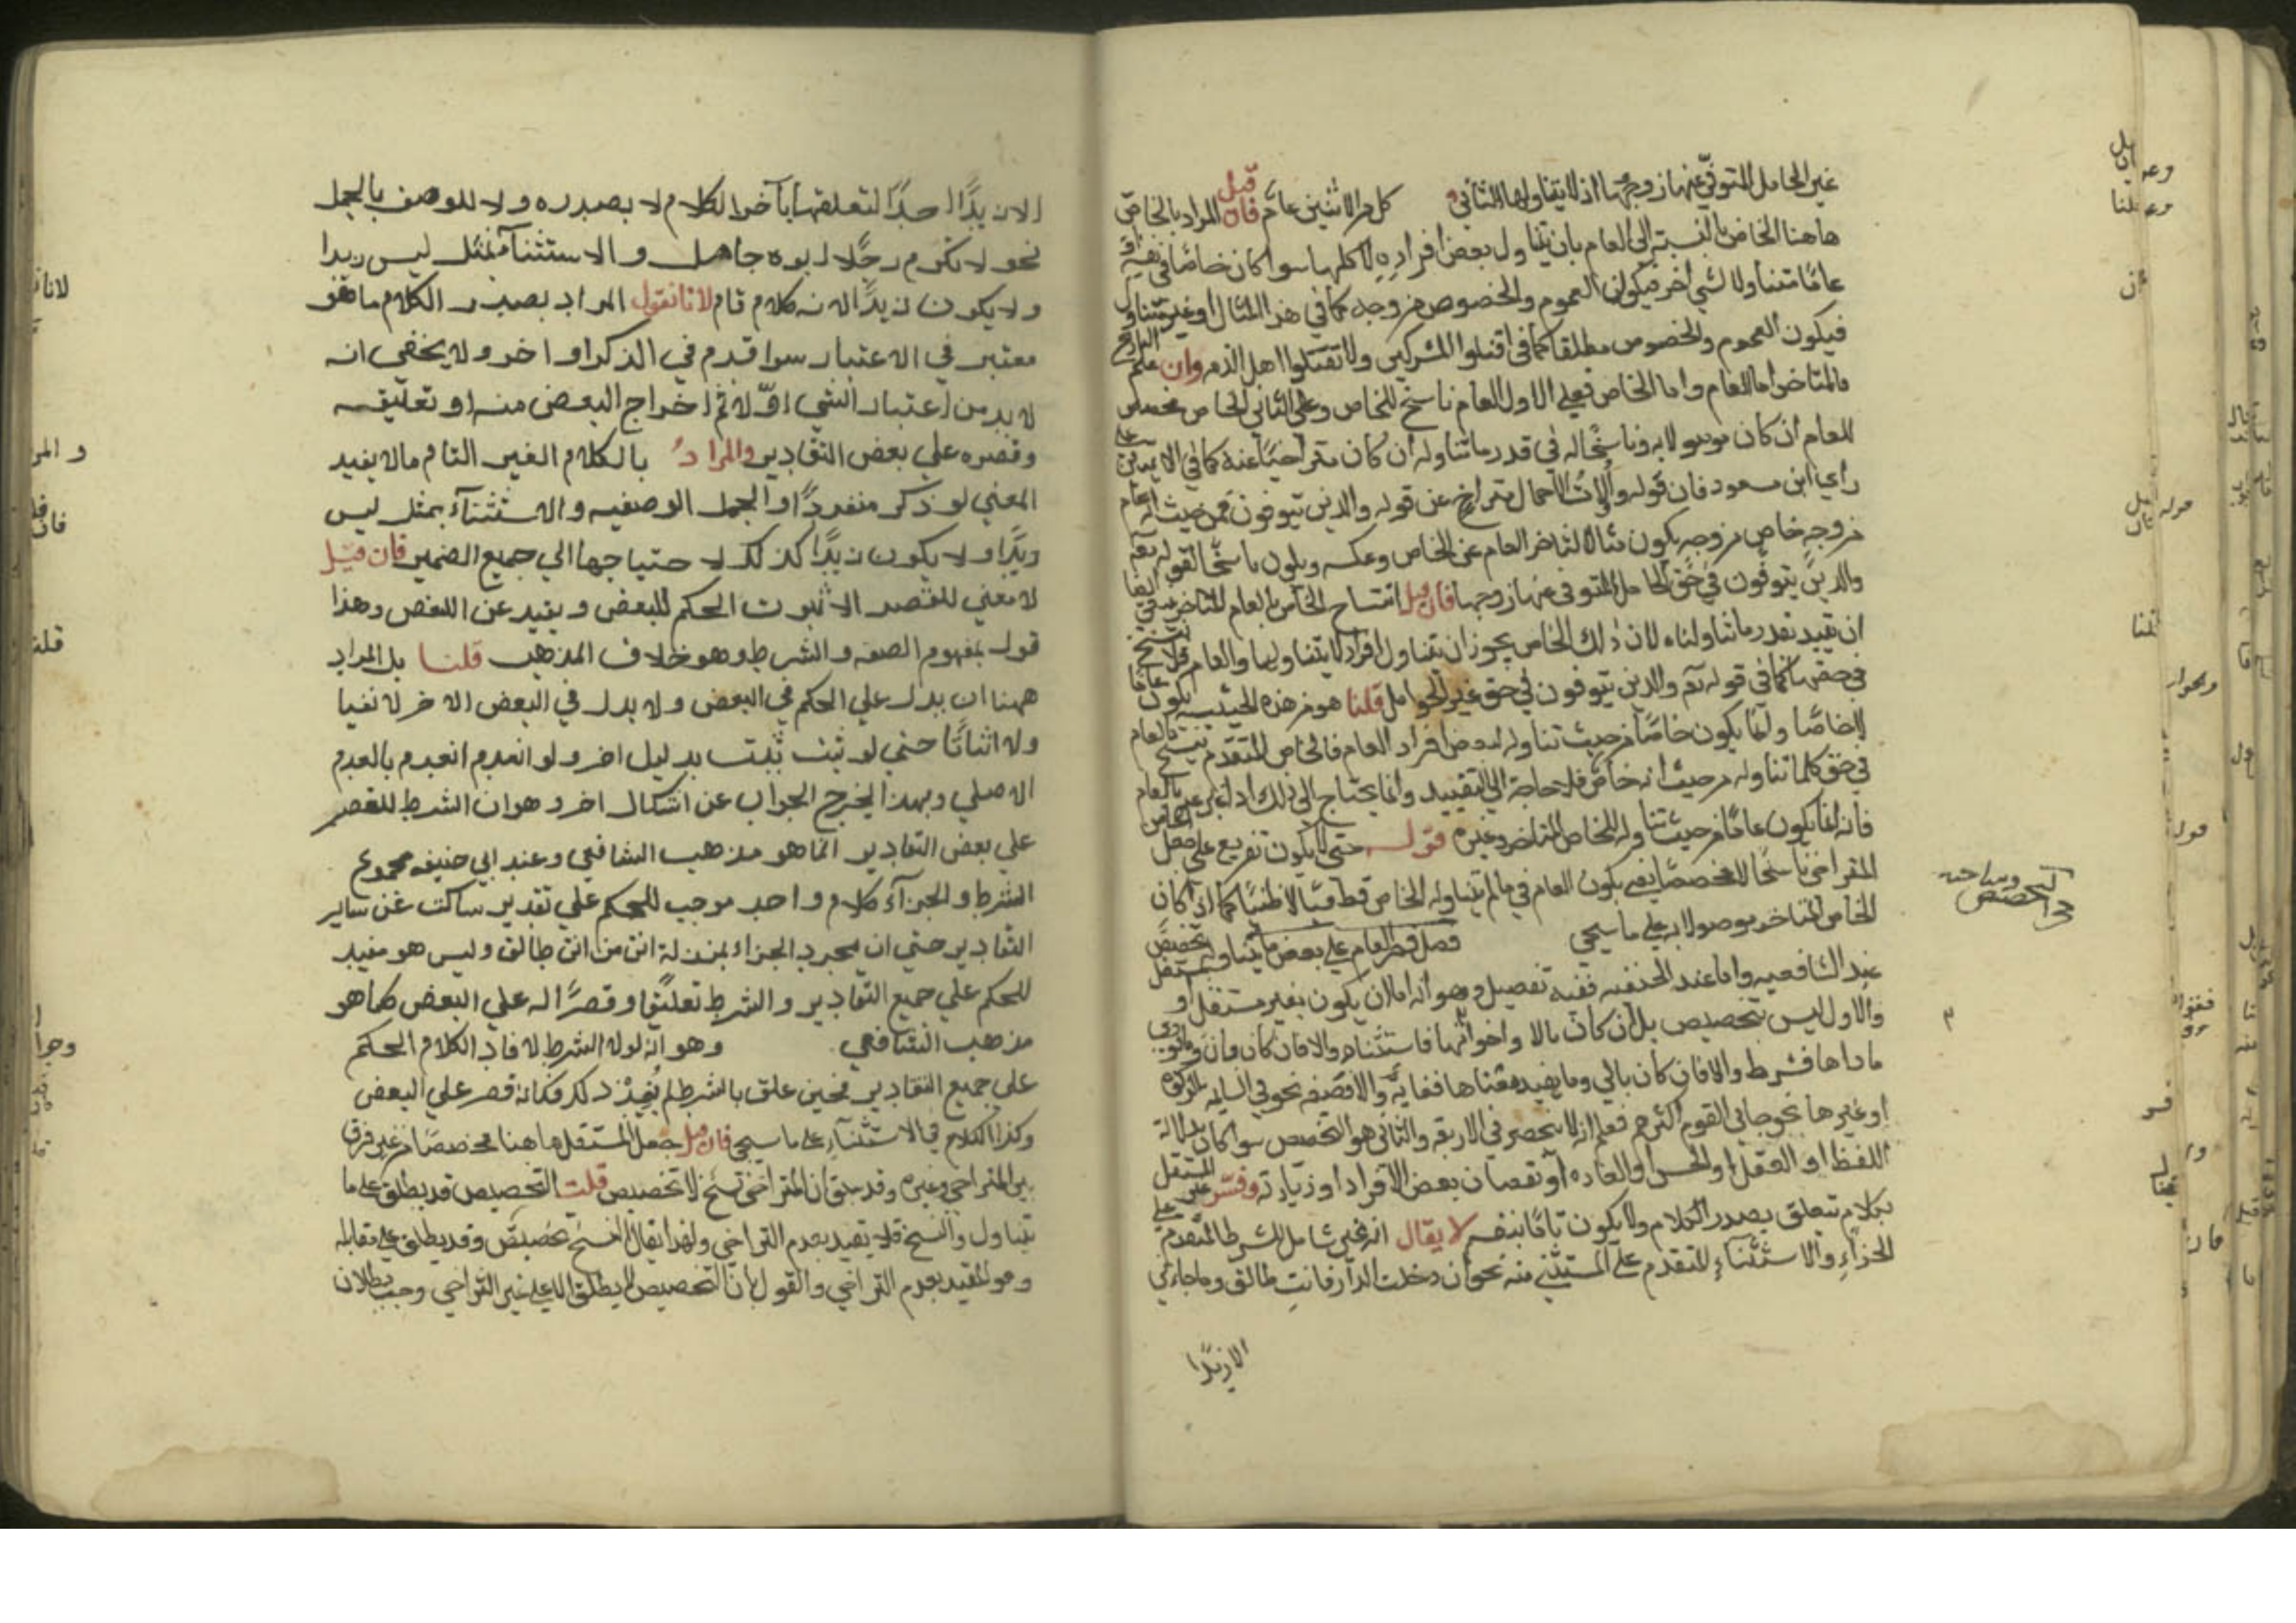 غير الحامل المتوفي عنها زوجها اذ لا يتناولها الثاني كل من الاثنين عام فان قيل المراد بالخاص
هاهنا الخاص بالنسبة الي العام بان يتناول بعض افراده لا كلها سوا كان خاصا في نفسه او
عاما متناولا لشي اخر فيكون العموم والخصوص من وجه كما في هذا المثال او غير متناول
فيكون العموم والخصوص مطلقا كما في اقتلوا المشركين ولا تقتلوا اهل الذمه وان علم التاريخ
فالمتاخر اما العام واما الخاص فعلي الاول العام ناسخ للخاص وعلي الثاني الخاص مخصص
للعام ان كان موصولا به وناسخا له في قدر ما تناوله ان كان متراخيا عنه كما في الايتين علي
راي ابن مسعود فان قوله وأولات الاحمال متراخ عن قوله والذين يتوفون فمن حيث انه عام
من وجه خاص من وجه يكون مثالا لتاخر العام عن الخاص وعكسه ويكون ناسخا لقوله تع
والذين يتوفون في حق الحامل المتوفي عنها زوجها فان قيل انتساخ الخاص بالعام المتاخر ينبغي ايضا
ان تقيد بقدر ما تناولناه لان ذلك الخاص يجوز ان يتناول افرادا لا يتناولها العام فلا ينسخ
في حقها كما في قوله تع والذين يتوفون في حق غير الحوامل قلنا هو من هذه الحيثيه يكون عاما
لا خاصا وانما يكون خاصا من حيث تناوله لبعض افراد العام فالخاص المتقدم ينسخ بالعام
في حق كل ما تناوله من حيث انه خاص فلا حاجة الي التقييد وانما يحتاج الي ذلك اذا عبر عنه بالعام
فانه انما يكون عاما من حيث تناوله للخاص المتاخر وغيره قوله حتي لا يكون تفريع علي جعل الخاص
المتراخي ناسخا لا مخصصا يعني يكون العام في ما لم يتناوله الخاص قطعيا لا ظنيا كما اذا كان
الخاص المتاخر موصولا به علي ما سيجي فصل قصر العام علي بعض ما يتناوله تخصيص
عند الشافعيه واما عند الحنفيه ففيه تفصيل وهو انه اما ان يكون بغير مستقل او بمستقل
والاول ليس بتخصيص بل ان كان بالا واخواتها فاستثناء والا فان كان بان وما يودي
ماداها فشرط والا فان كان بالي وما يفيد معناها فغاية والا فصفه نحو في السايمه الزكوة
او غيرها نحو جاني القوم اكثرهم فعلم انه لا ينحصر في الاربعه والثاني هو التخصيص سوا كان بدلالة
اللفظ او العقل او الحس او العاده او نقصان بعض الافراد او زيادته وفسر غير المستقل
بكلام يتعلق بصدر الكلام ولا يكون تاما بنفسه لا يقال انه غير شامل للشرط المتقدم علي
الجزاء والاستثناء المتقدم علي المستثني منه نحو ان دخلت الدار فانت طالق وما جاءني
الا زيدا
التخصيص ومباحثه
الا زيدا احدا لتعلقها بآخر الكلام لا بصدره ولا للوصف بالجمل
نحو لا تكرم رجلا ابوه جاهل والاستثنا بمثل ليس زيدا
ولا يكون زيدا لانه كلام تام لانا نقول المراد بصدر الكلام ما هو
معتبر في الاعتبار سوا قدم في الذكر او اخر ولا يخفي انه
لا بد من اعتبار الشي اولا ثم اخراج البعض منه او تعليقه
وقصره علي بعض التقادير والمراد بالكلام الغير التام ما لا يفيد
المعني لو ذكر منفردا والجمل الوصفيه والاستثناء بمثل ليس
زيدا ولا يكون زيدا كذلك لاحتياجها الي جميع الضمير فان قيل
لا معني للقصر الا ثبوت الحكم للبعض ونفيه عن البعض وهذا
قول بمفهوم الصفه والشرط وهو خلاف المذهب قلنا بل المراد
ههنا ان يدل علي الحكم في البعض ولا يدل في البعض الاخر لا نفيا
ولا اثباتا حتي لو ثبت ثبت بدليل اخر ولو انعدم انعدم بالعدم
الاصلي وبهذا يخرج الجواب عن اشكال اخر وهو ان الشرط للقصر
علي بعض التقادير انما هو مذهب الشافعي وعند ابي حنيفه مجموع
الشرط والجزاء كلام واحد موجب للحكم علي تقدير ساكت عن ساير
التقادير حتي ان مجرد الجزاء بمنزلة انت من انت طالق وليس هو مفيد
للحكم علي جميع التقادير والشرط تعليقا وقصرا له علي البعض كما هو
مذهب الشافعي وهو انه لولا الشرط لافاد الكلام الحكم
علي جميع التقادير فحين علق بالشرط لم يفد ذلك فكانه قصر علي البعض
وكذا الكلام في الاستثناء علي ما سيجي فان قيل جعل المستقل هاهنا مخصصا من غير فرق
بين المتراخي وغيره وقد سبق ان المتراخي نسخ لا تخصيص قلت التخصيص قد يطلق علي ما
يتناول والنسخ فلا يقيد بعدم التراخي ولهذا يقال النسخ تخصيص وقد يطلق علي مقابله
وهو المقيد بعدم التراخي والقول بان التخصيص لا يطلق الا علي غير التراخي وجب بطلان